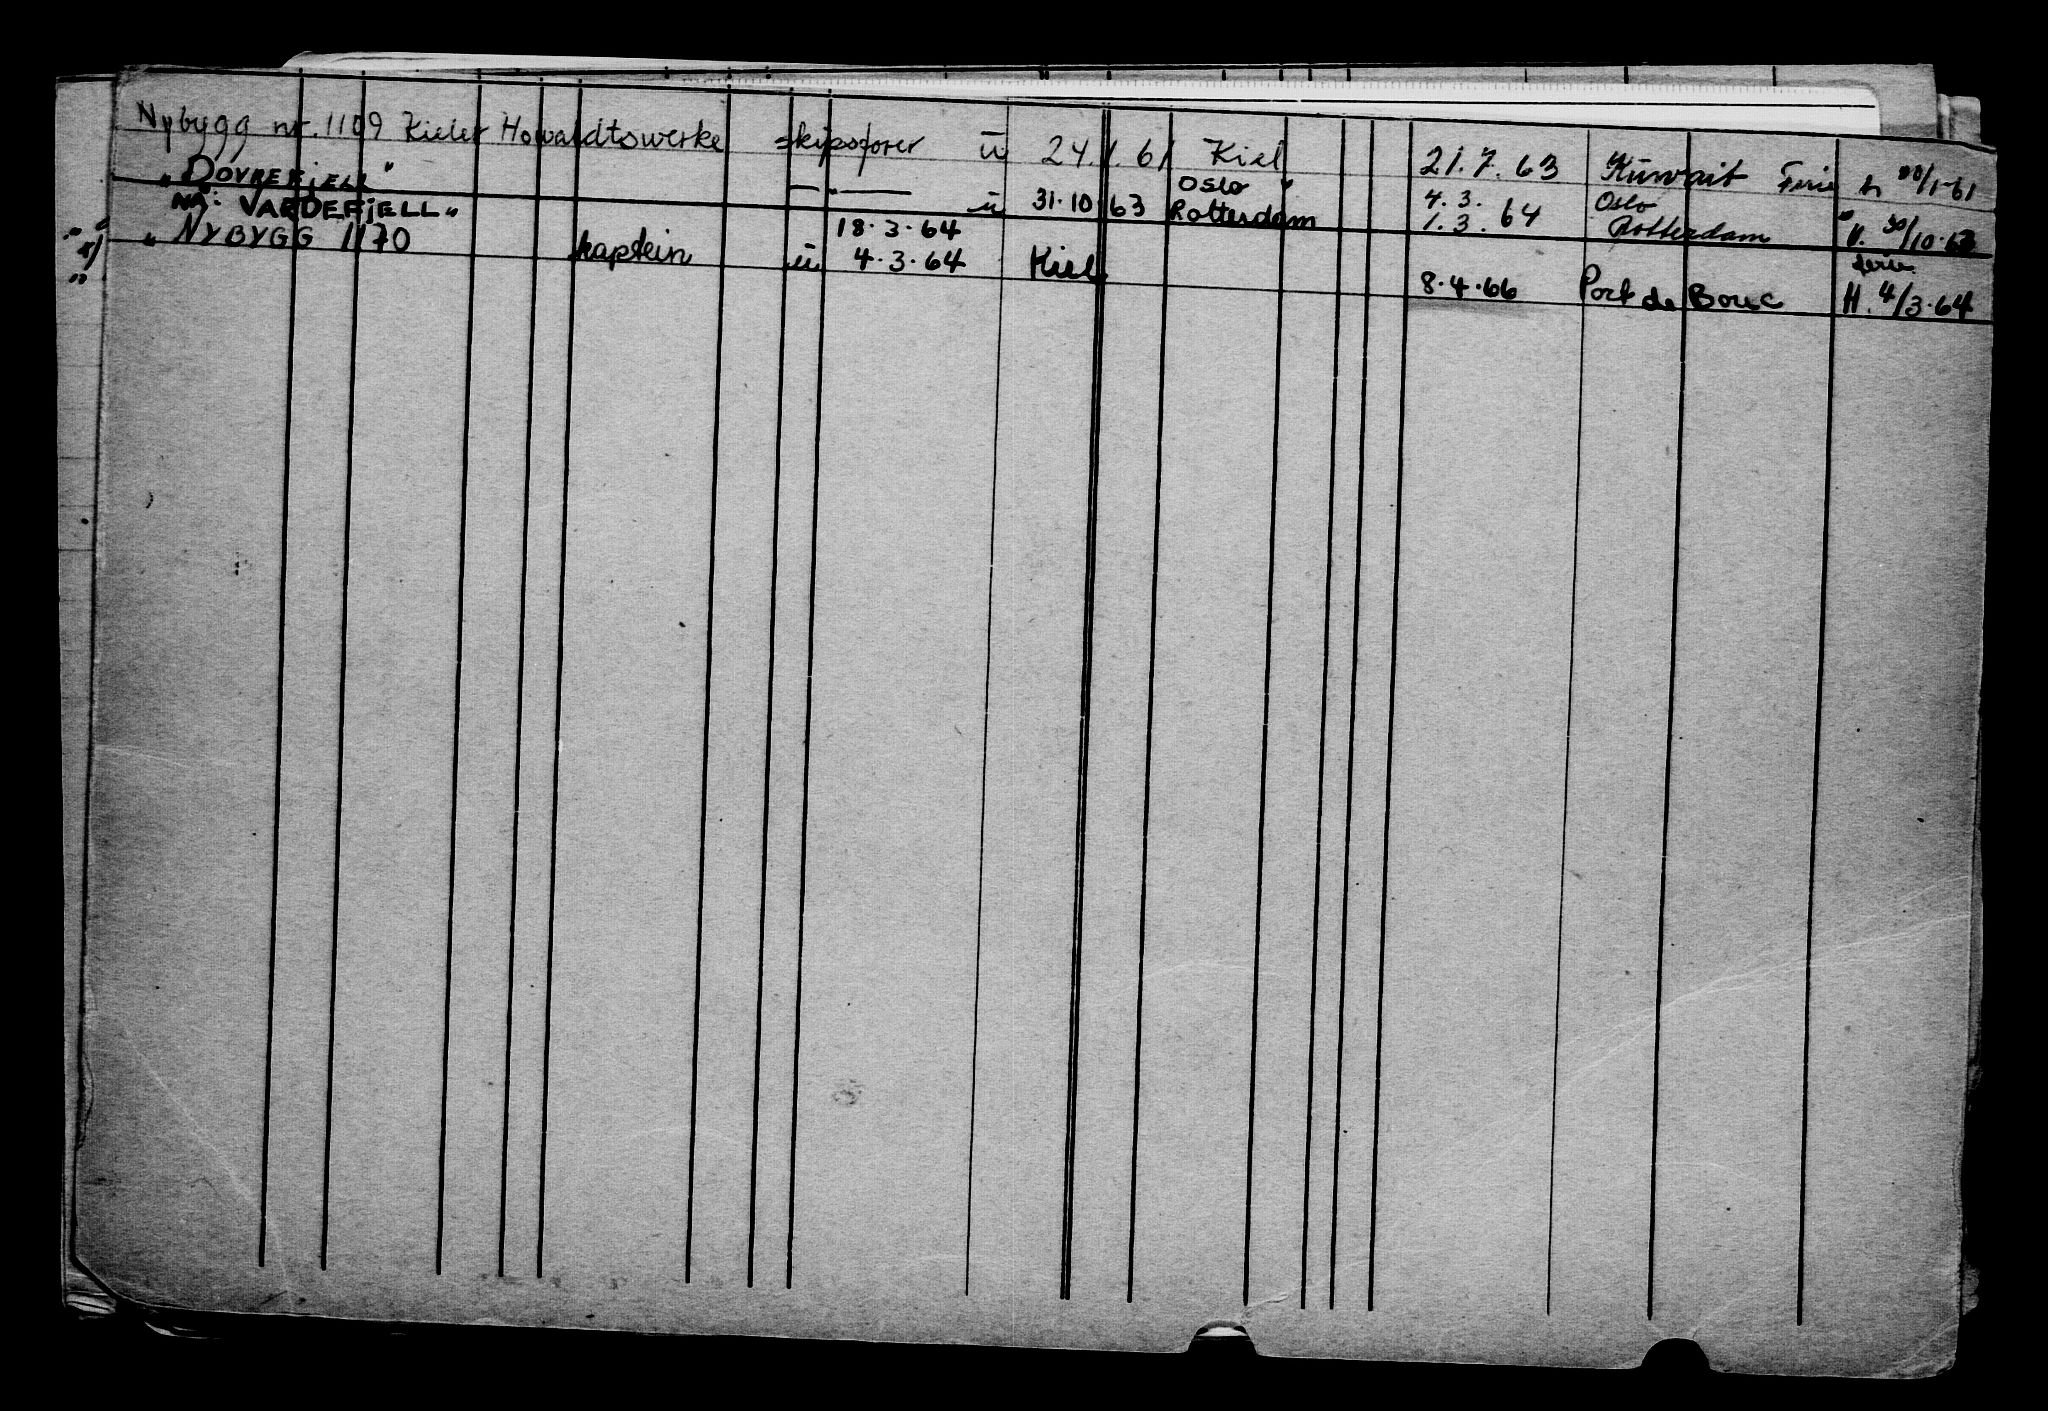 Nybygg nr. 1109 Kieler Howaldtswerke skipsfører ü 24.1.61 Kiel 21.7.63 Kuwait Ferie h 20/1-61
"DOVREFJELL" — " — ü 31.10 63 Oslo Rotterdam 4.3. 1.3. 64 Oslo Rotterdam " H. 30/10.63
nå: VARDEFJELL"
" NYBYGG 1170 kaptein ü 18.3.64 4.3.64 Kiel 8.4.66 Port de Bouc ferie H. 4/3.64